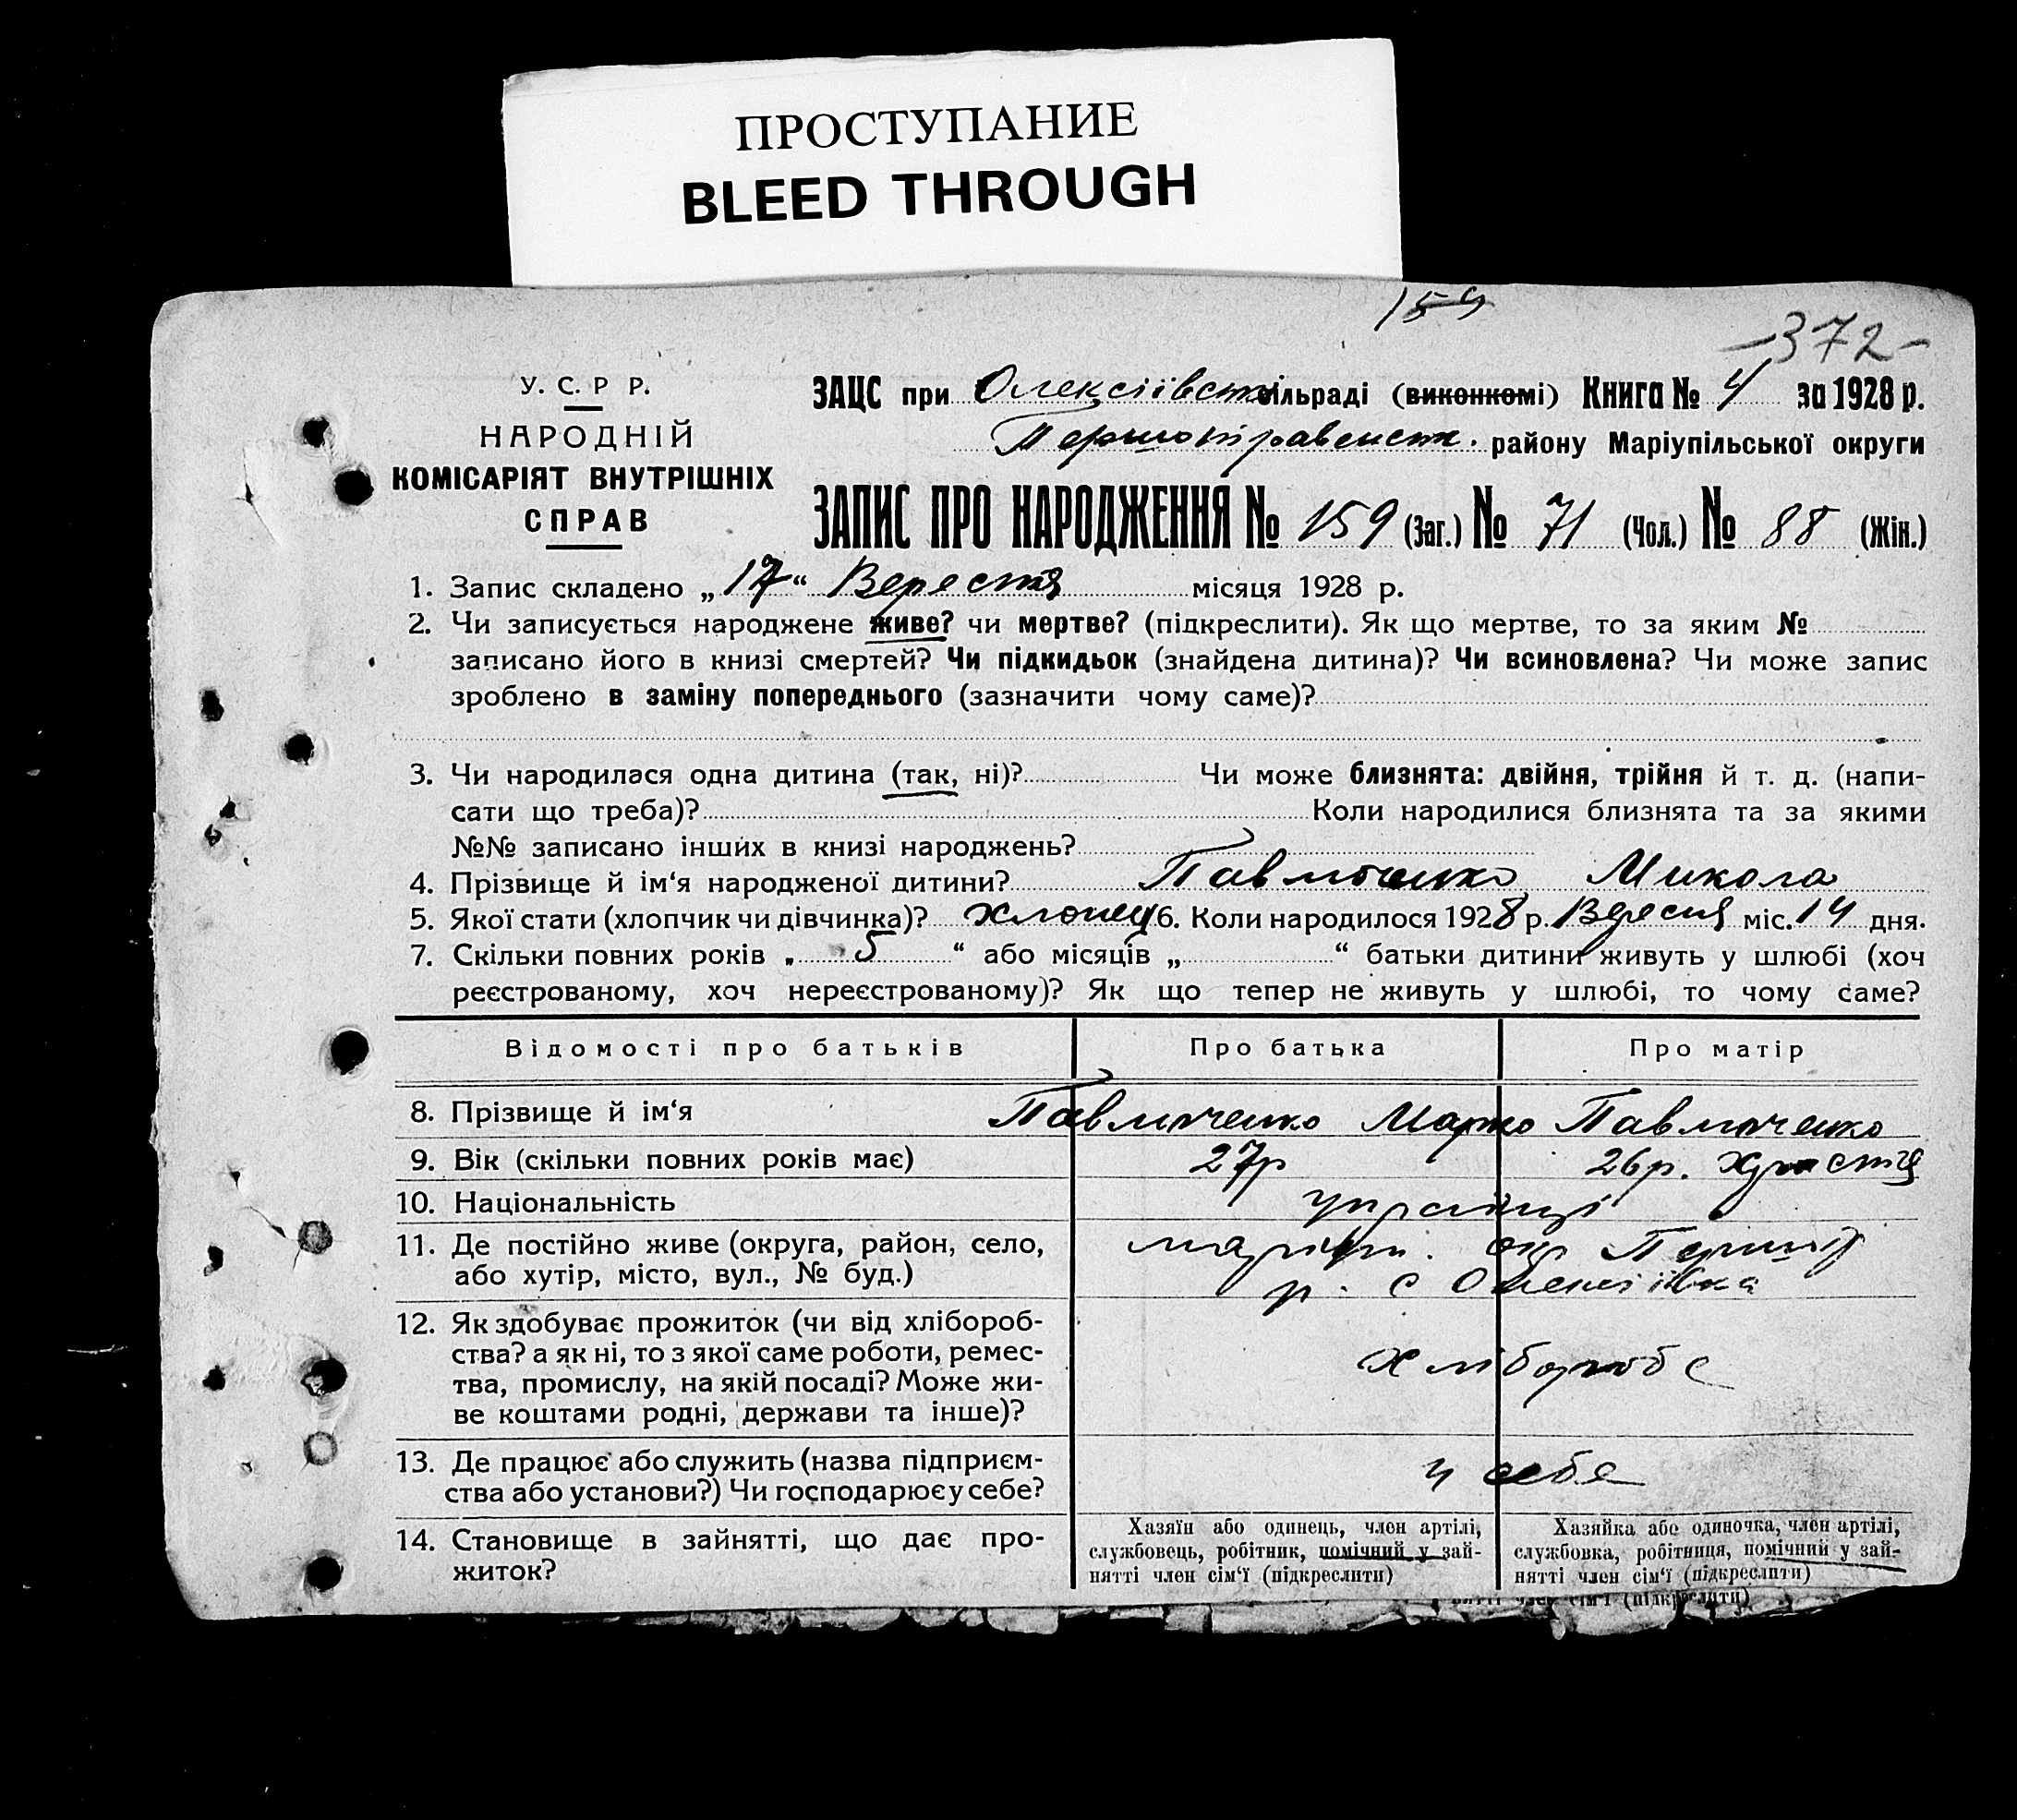 ПРОСТУПАНИЕ
BLEED THROUGH
159
-372-
У. С. Р Р.
НАРОДНІЙ
КОМІСАРІЯТ ВНУТРІШНІХ
СПРАВ
ЗАЦС при Олексіївськ сільраді (виконкомі) Книга № 4 за 1928 р.
Першотравенськ. району Маріупільської округи
ЗАПИС ПРО НАРОДЖЕННЯ № 159 (Заг.) № 71 (Чол.) № 88 (Жін.)
1. Запис складено „17“ Вересня місяця 1928 р.
2. Чи записується народжене живе? чи мертве? (підкреслити). Як що мертве, то за яким №
записано його в книзі смертей? Чи підкидьок (знайдена дитина)? Чи всиновлена? Чи може запис
зроблено в заміну попереднього (зазначити чому саме)?
3. Чи народилася одна дитина (так, ні)? Чи може близнята: двійня, трійня й т. д. (напи-
сати що треба)? Коли народилися близнята та за якими
№№ записано інших в книзі народжень?
4. Прізвище й ім‘я народженої дитини? Павличенко Микола
5. Якої стати (хлопчик чи дівчинка)? Хлопець 6. Коли народилося 1928 р. Вересня міс. 14 дня.
7. Скільки повних років „ 5 “ або місяців „ “ батьки дитини живуть у шлюбі (хоч
реєстрованому, хоч нереєстрованому)? Як що тепер не живуть у шлюбі, то чому саме?
Відомості про батьків Про батька Про матір
8. Прізвище й ім‘я Павличенко Марко Павличенко
9. Вік (скільки повних років має) 27р 26р. Христя
10. Національність українці
11. Де постійно живе (округа, район, село, маріуп. окр Перштр
або хутір, місто, вул., № буд.) р. с Олексіївка
12. Як здобуває прожиток (чи від хлібороб-
ства? а як ні, то з якої саме роботи, ремес- хлібороб
тва, промислу, на якій посаді? Може жи-
ве коштами родні, держави та інше)?
13. Де працює або служить (назва підприєм- у себе
ства або установи?) Чи господарює у себе?
14. Становище в зайнятті, що дає про-
житок?
Хазяїн або одинець, член артілі,
службовець, робітник, помічний у зай-
нятті член сім‘ї (підкреслити)
Хазяйка або одиночка, член артілі,
службовка, робітниця, помічний у зай-
нятті член сім‘ї (підкреслити)
нятті член сім‘ї (підкреслити)